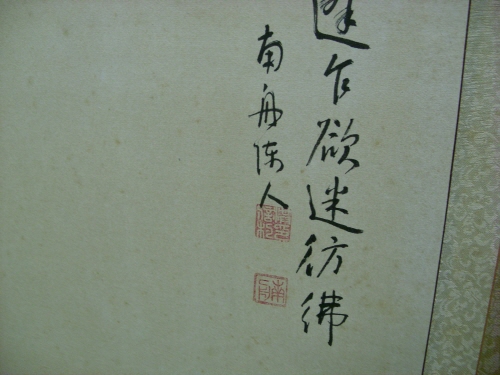 乍欲迷彷彿
南舟陳人
南舟